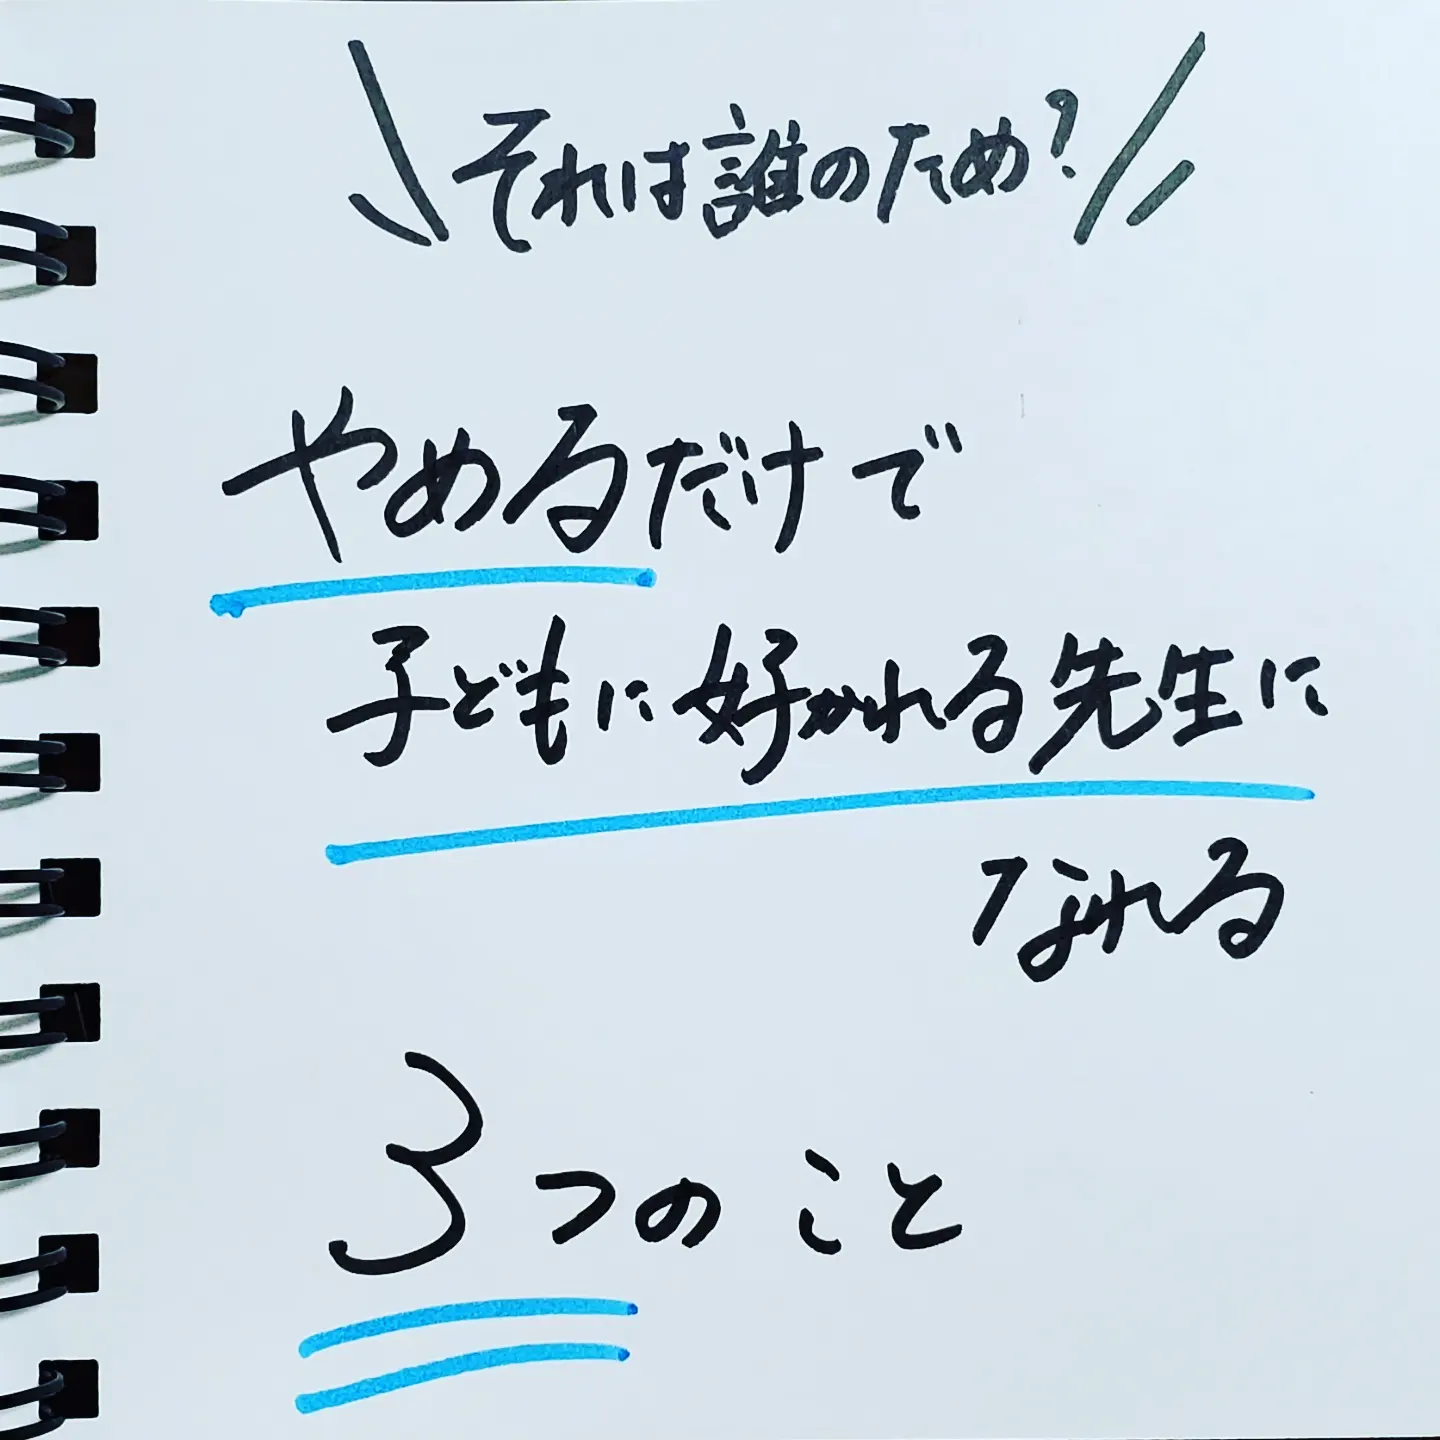 それは誰のため?
やめるだけで
子どもに好かれる先生に
なれる
3つのこと